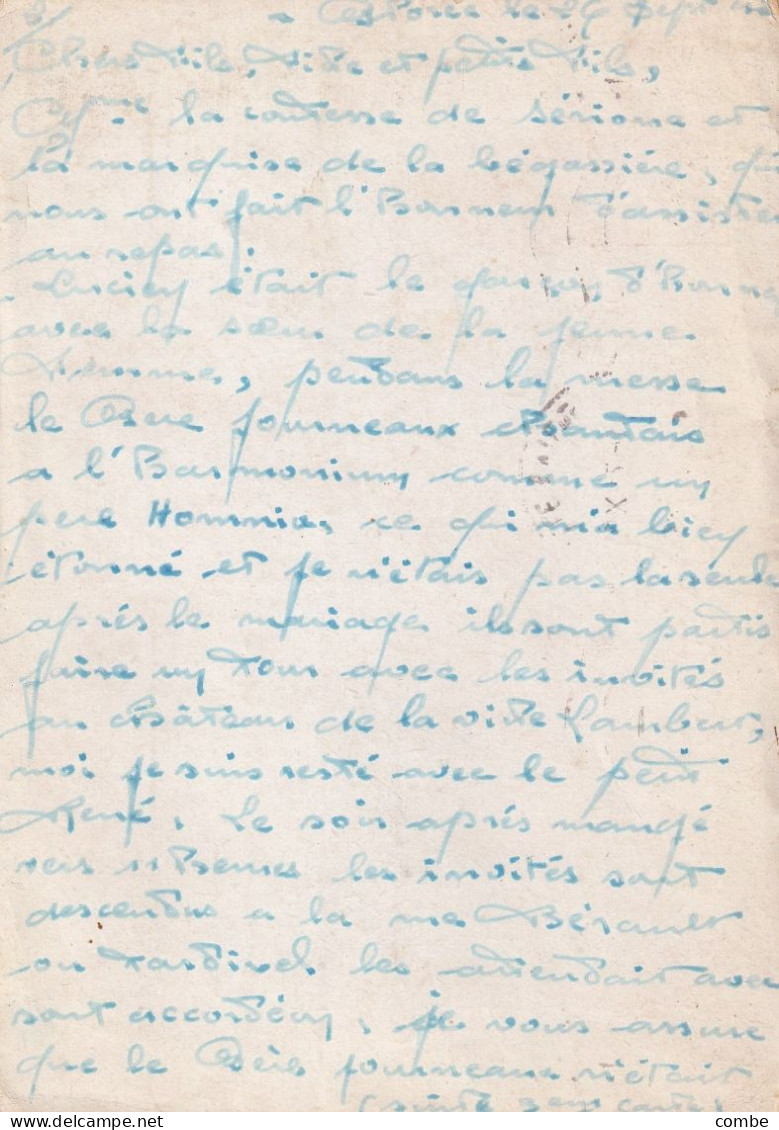 le 26 Sept
Chers fils, fille et petits fils,
la comtesse de Sérionne et
la marquise de la bégassière, qui
nous ont fait l'honneur d'assister
au repas.
Lucien était le garçon d'honn
avec la sœur de la jeune
femme, pendans la messe
le Père fourneaux chantais
a l'harmonium comme un
pere Homnia, ce qui m'a bien
étonné et je n'étais pas la seule
aprés le mariage ils sont partis
faire un tour avec les invités
au château de la ville Lambert,
moi je suis resté avec le petit
René. Le soir aprés mangé
vers 11 heures les invités sont
descendus a la rue Bérault
ou Tardivel les attendait avec
sont accordéon, je vous assure
que le Père fourneaux n'était
(suite 3em carte)
delcampe.net
combe